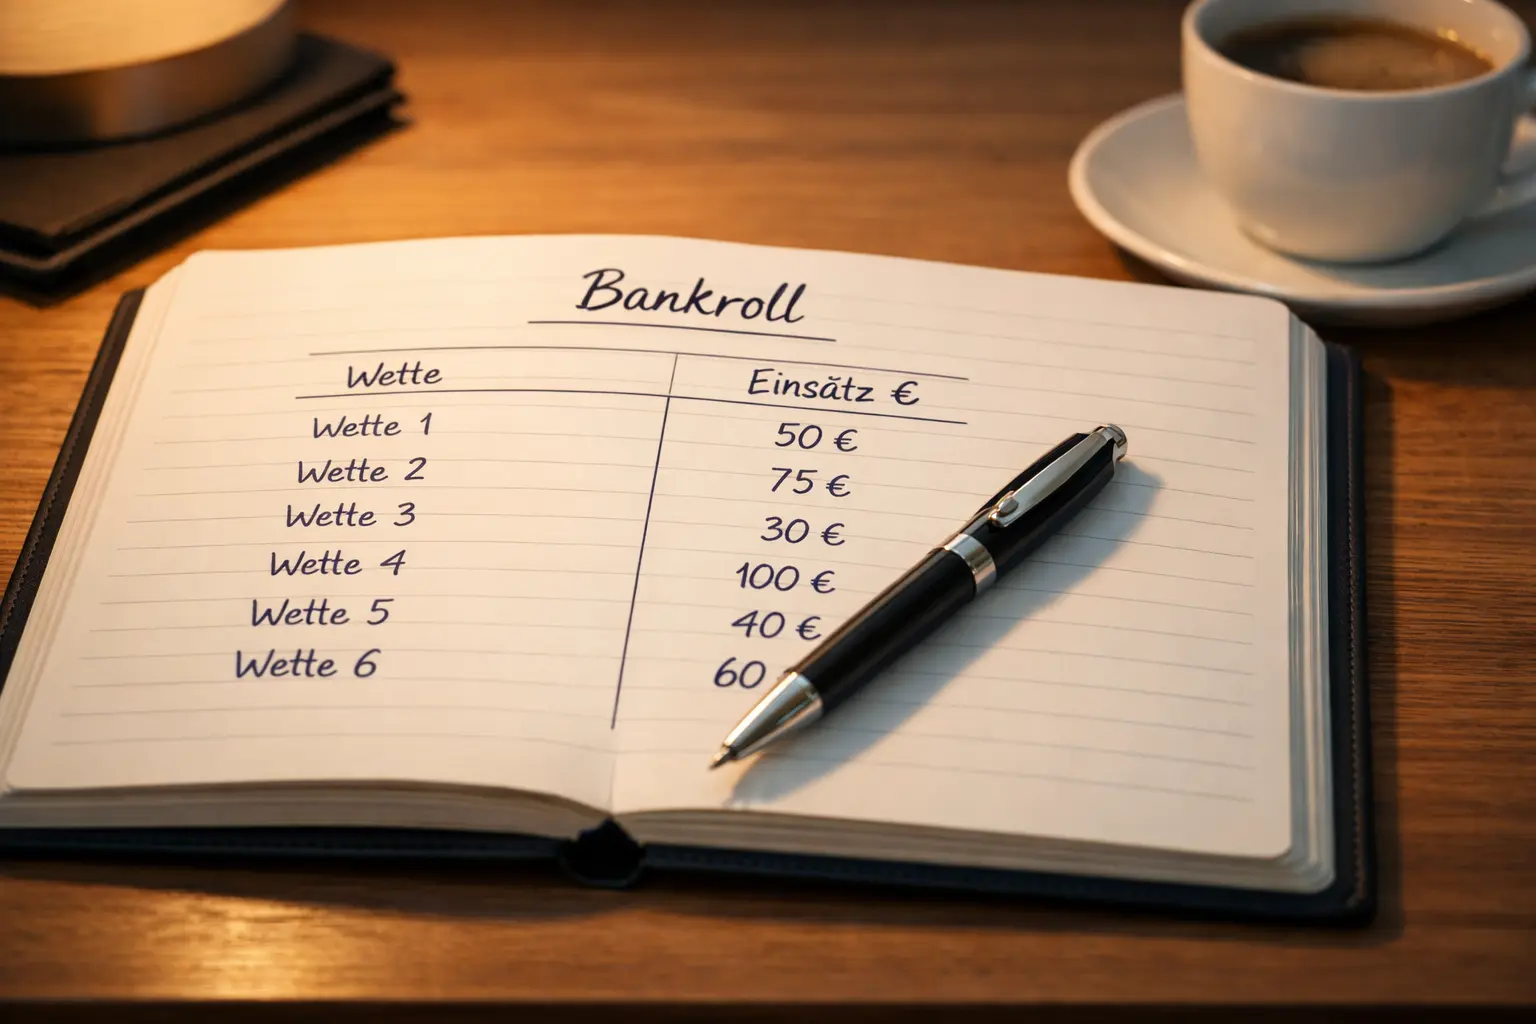 Bankroll
Wette Einsătz €
Wette 1 50 €
Wette 2 75 €
Wette 3 30 €
Wette 4 100 €
Wette 5 40 €
Wette 6 60